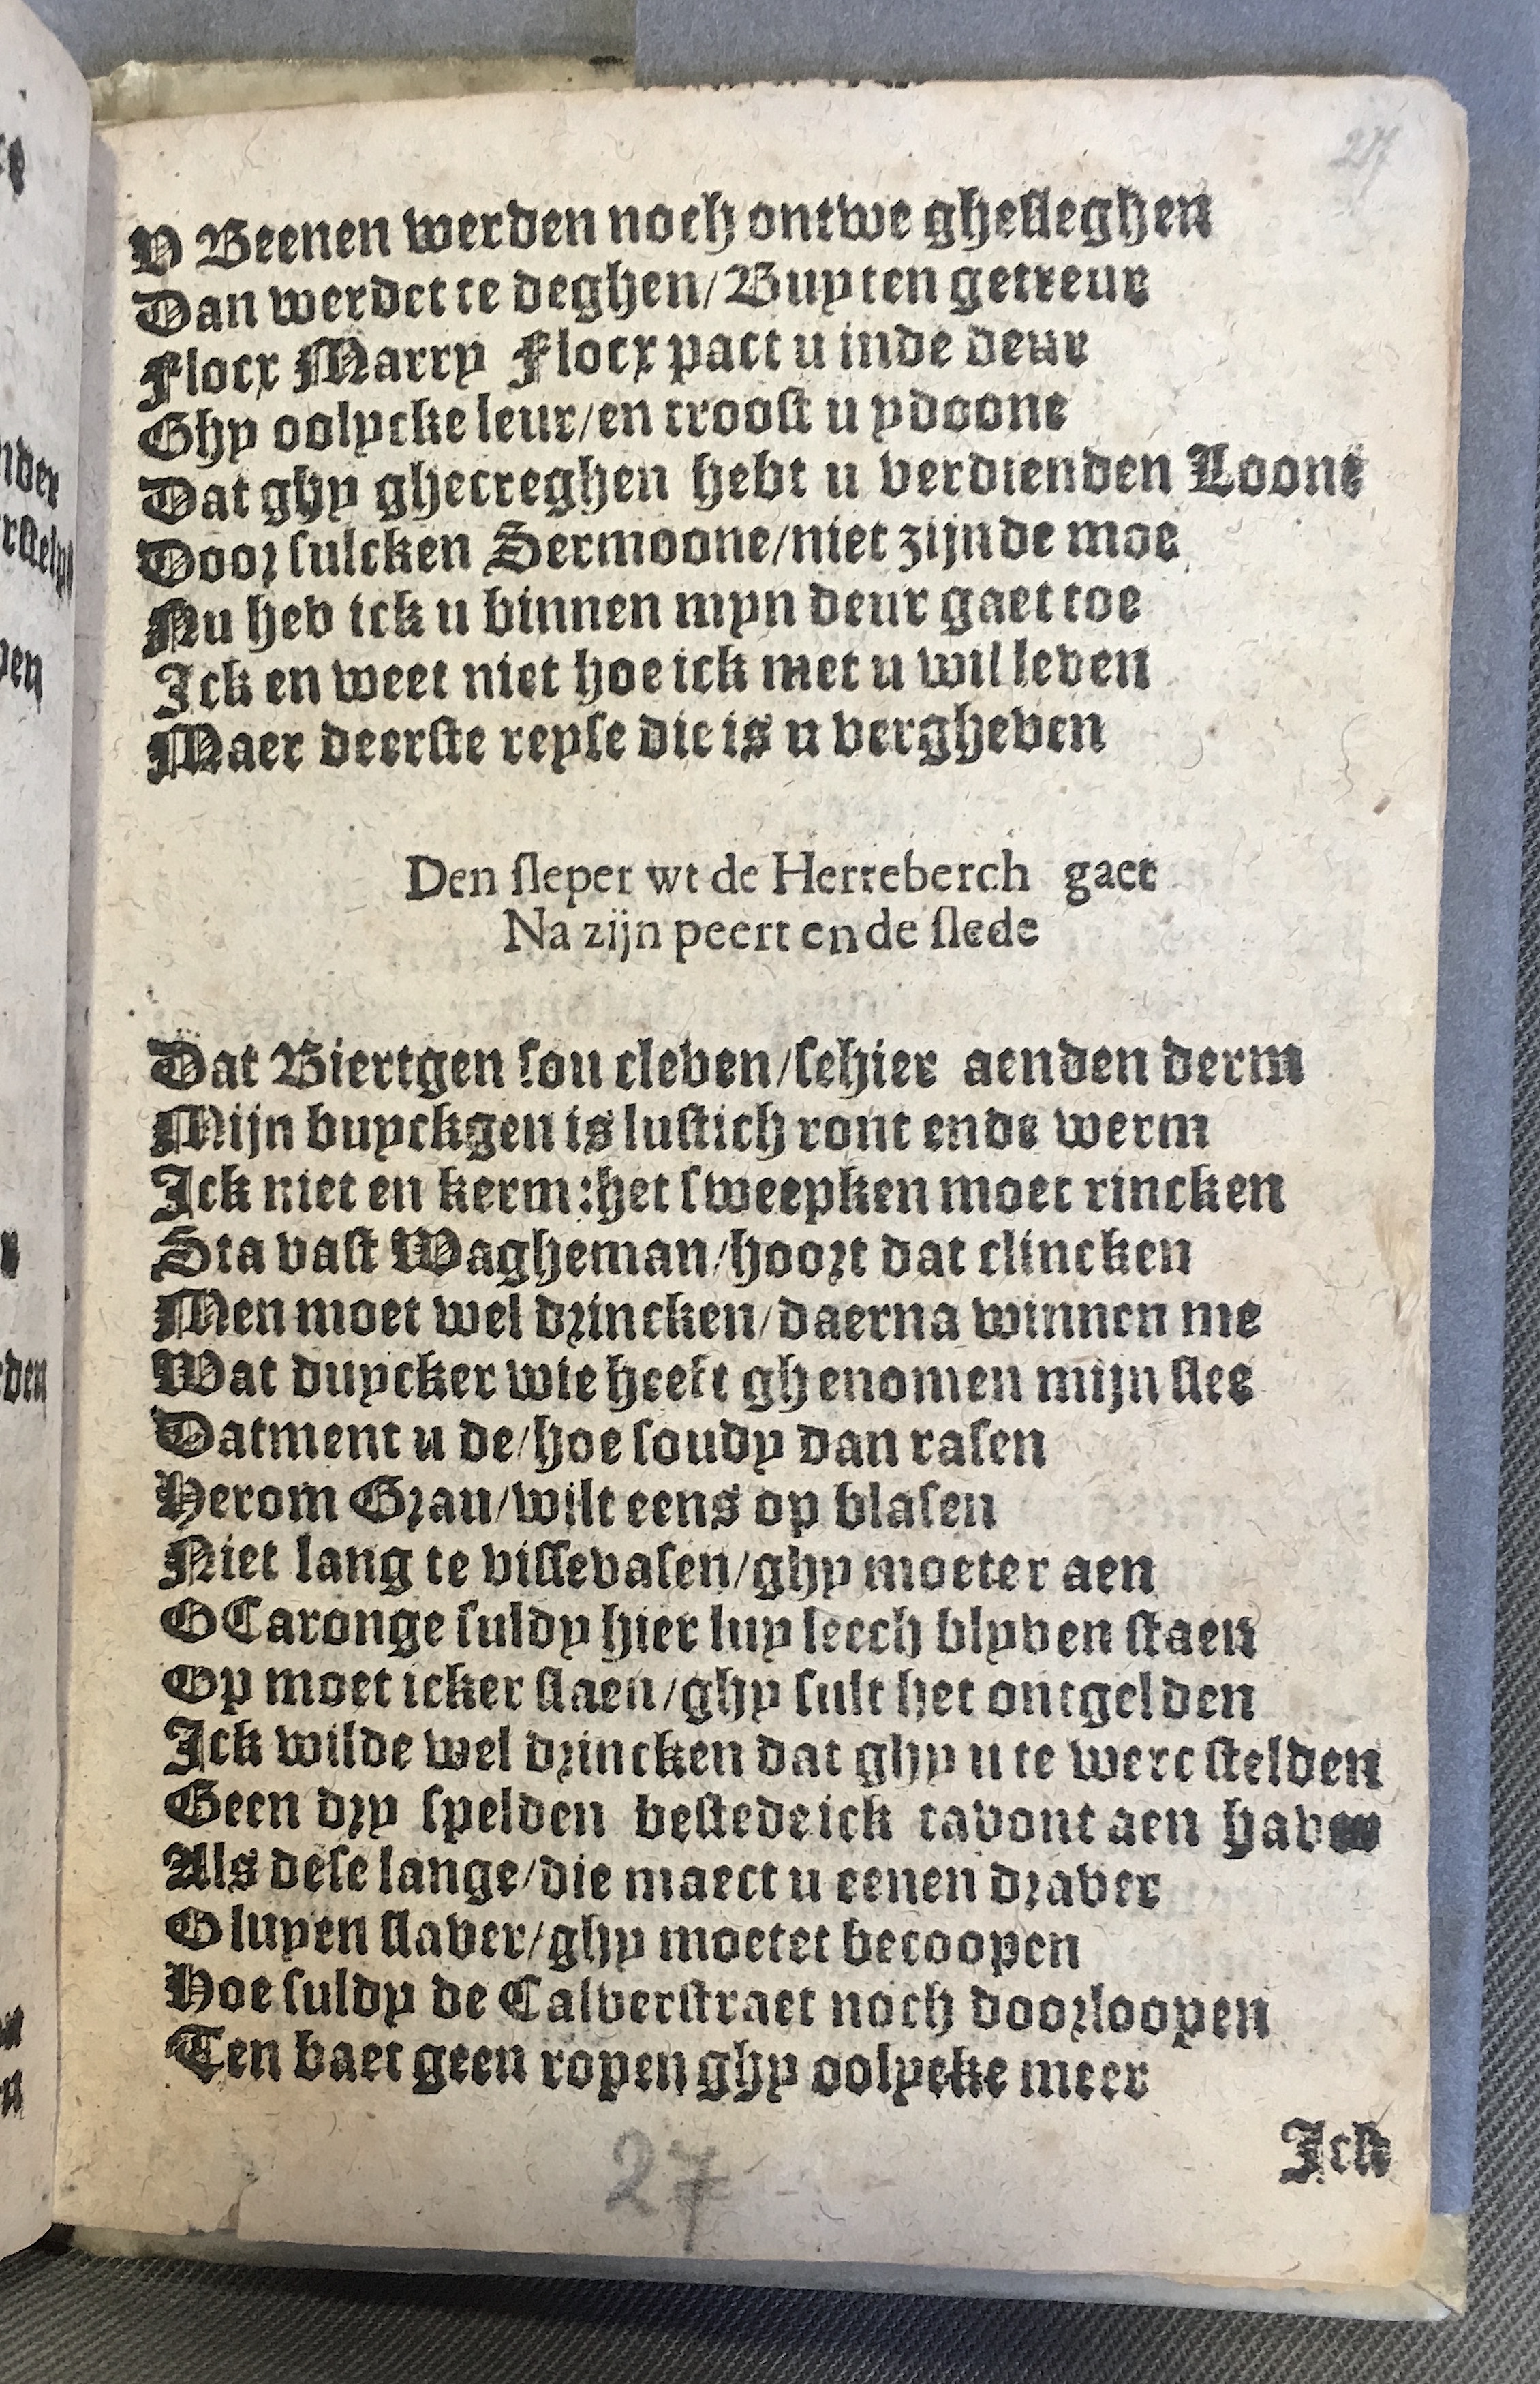 27
V Beenen werden noch ontwe gheſleghen
Dan werdet te deghen/Buyten getreur
Flocx Marry Flocx pact u inde deur
Ghy oolycke leur/en trooſt u ydoone
Dat ghy ghecreghen hebt u verdienden Loone
Door ſulcken Sermoone/niet zijnde moe
Nu heb ick u binnen myn deur gaet toe
Ick en weet niet hoe ick met u wil leven
Maer deerſte reyſe die is u vergheven
Den ſleper wt de Herreberch gaet
Na zijn peert ende ſlede
Dat Biertgen ſou cleven/ſchier aenden derm
Mijn buyckgen is luſtich ront ende werm
Ick niet en kerm:het ſweepken moet rincken
Sta vaſt Wagheman/hoort dat clincken
Men moet wel drincken/daerna winnen me
Wat duycker wie heeft ghenomen mijn ſlee
Datment u de/hoe ſoudy dan raſen
Herom Grau/wilt eens op blaſen
Niet lang te viſſevaſen/ghy moeter aen
O Caronge ſuldy hier luy leech blyven ſtaen
Op moet icker ſlaen/ghy ſult het ontgelden
Ick wilde wel drincken dat ghy u te werc ſtelden
Geen dry ſpelden beſtede ick tavont aen haver
Als deſe lange/die maect u eenen draver
O luyen ſlaver/ghy moetet becoopen
Hoe ſuldy de Calverſtraet noch doorloopen
Ten baet geen ropen ghy oolycke meer
Ick
27